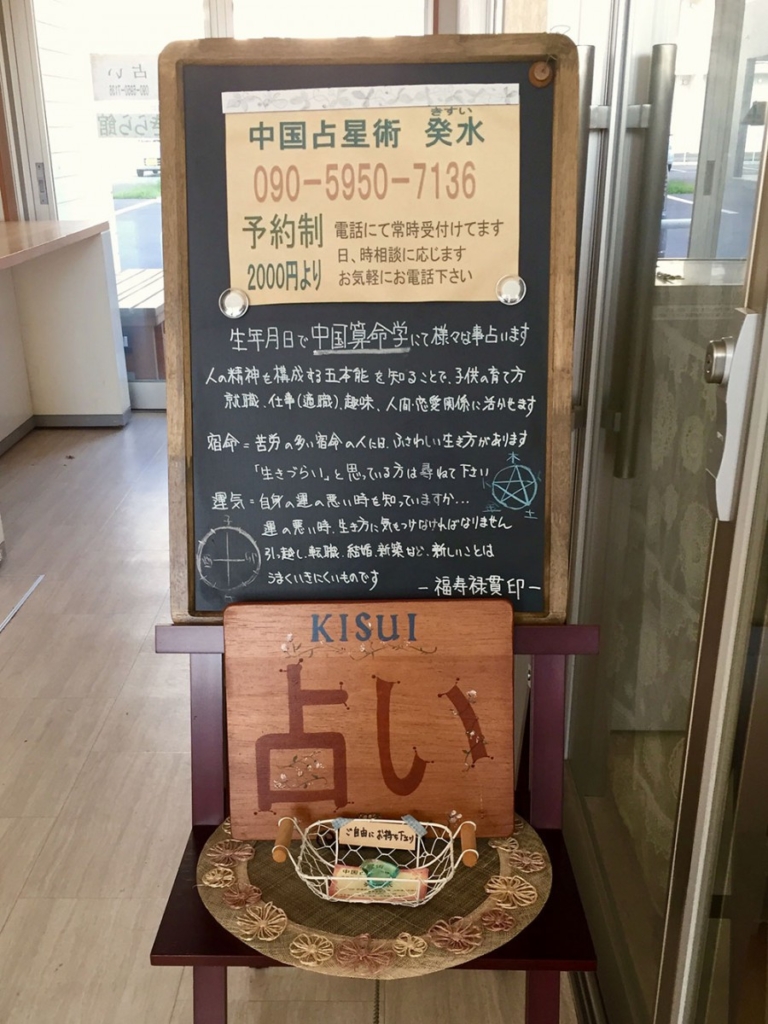 占い
090-5950-7136
きらら館
きすい
中国占星術 癸水
090-5950-7136
予約制
2000円より
電話にて常時受付けてます
日、時相談に応じます
お気軽にお電話下さい
生年月日で中国算命学にて様々な事占います
人の精神を構成する五本能を知ることで、子供の育て方
就職、仕事(適職)、趣味、人間・恋愛関係に活かせます
宿命=苦労の多い宿命の人には、ふさわしい生き方があります
「生きづらい」と思っている方は尋ねて下さい
木
火
土
金
水
運気=自身の運の悪い時を知っていますか…
運の悪い時、生き方に気をつけなければなりません
引っ越し、転職、結婚、新築など、新しいことは
うまくいきにくいものです
-福寿禄貫印-
KISUI
占い
ご自由にお持ち下さい